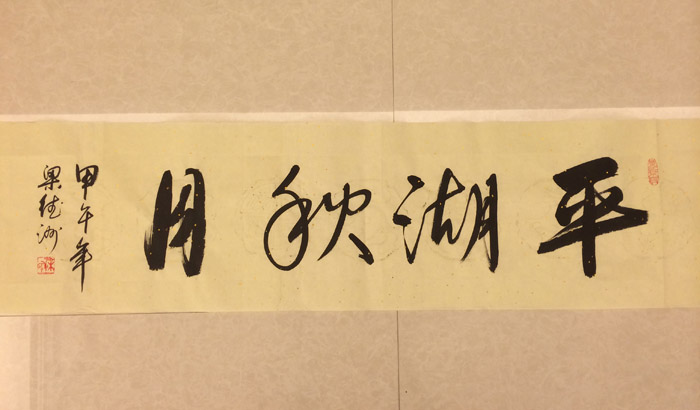 平湖秋月
甲午年
梁德洲